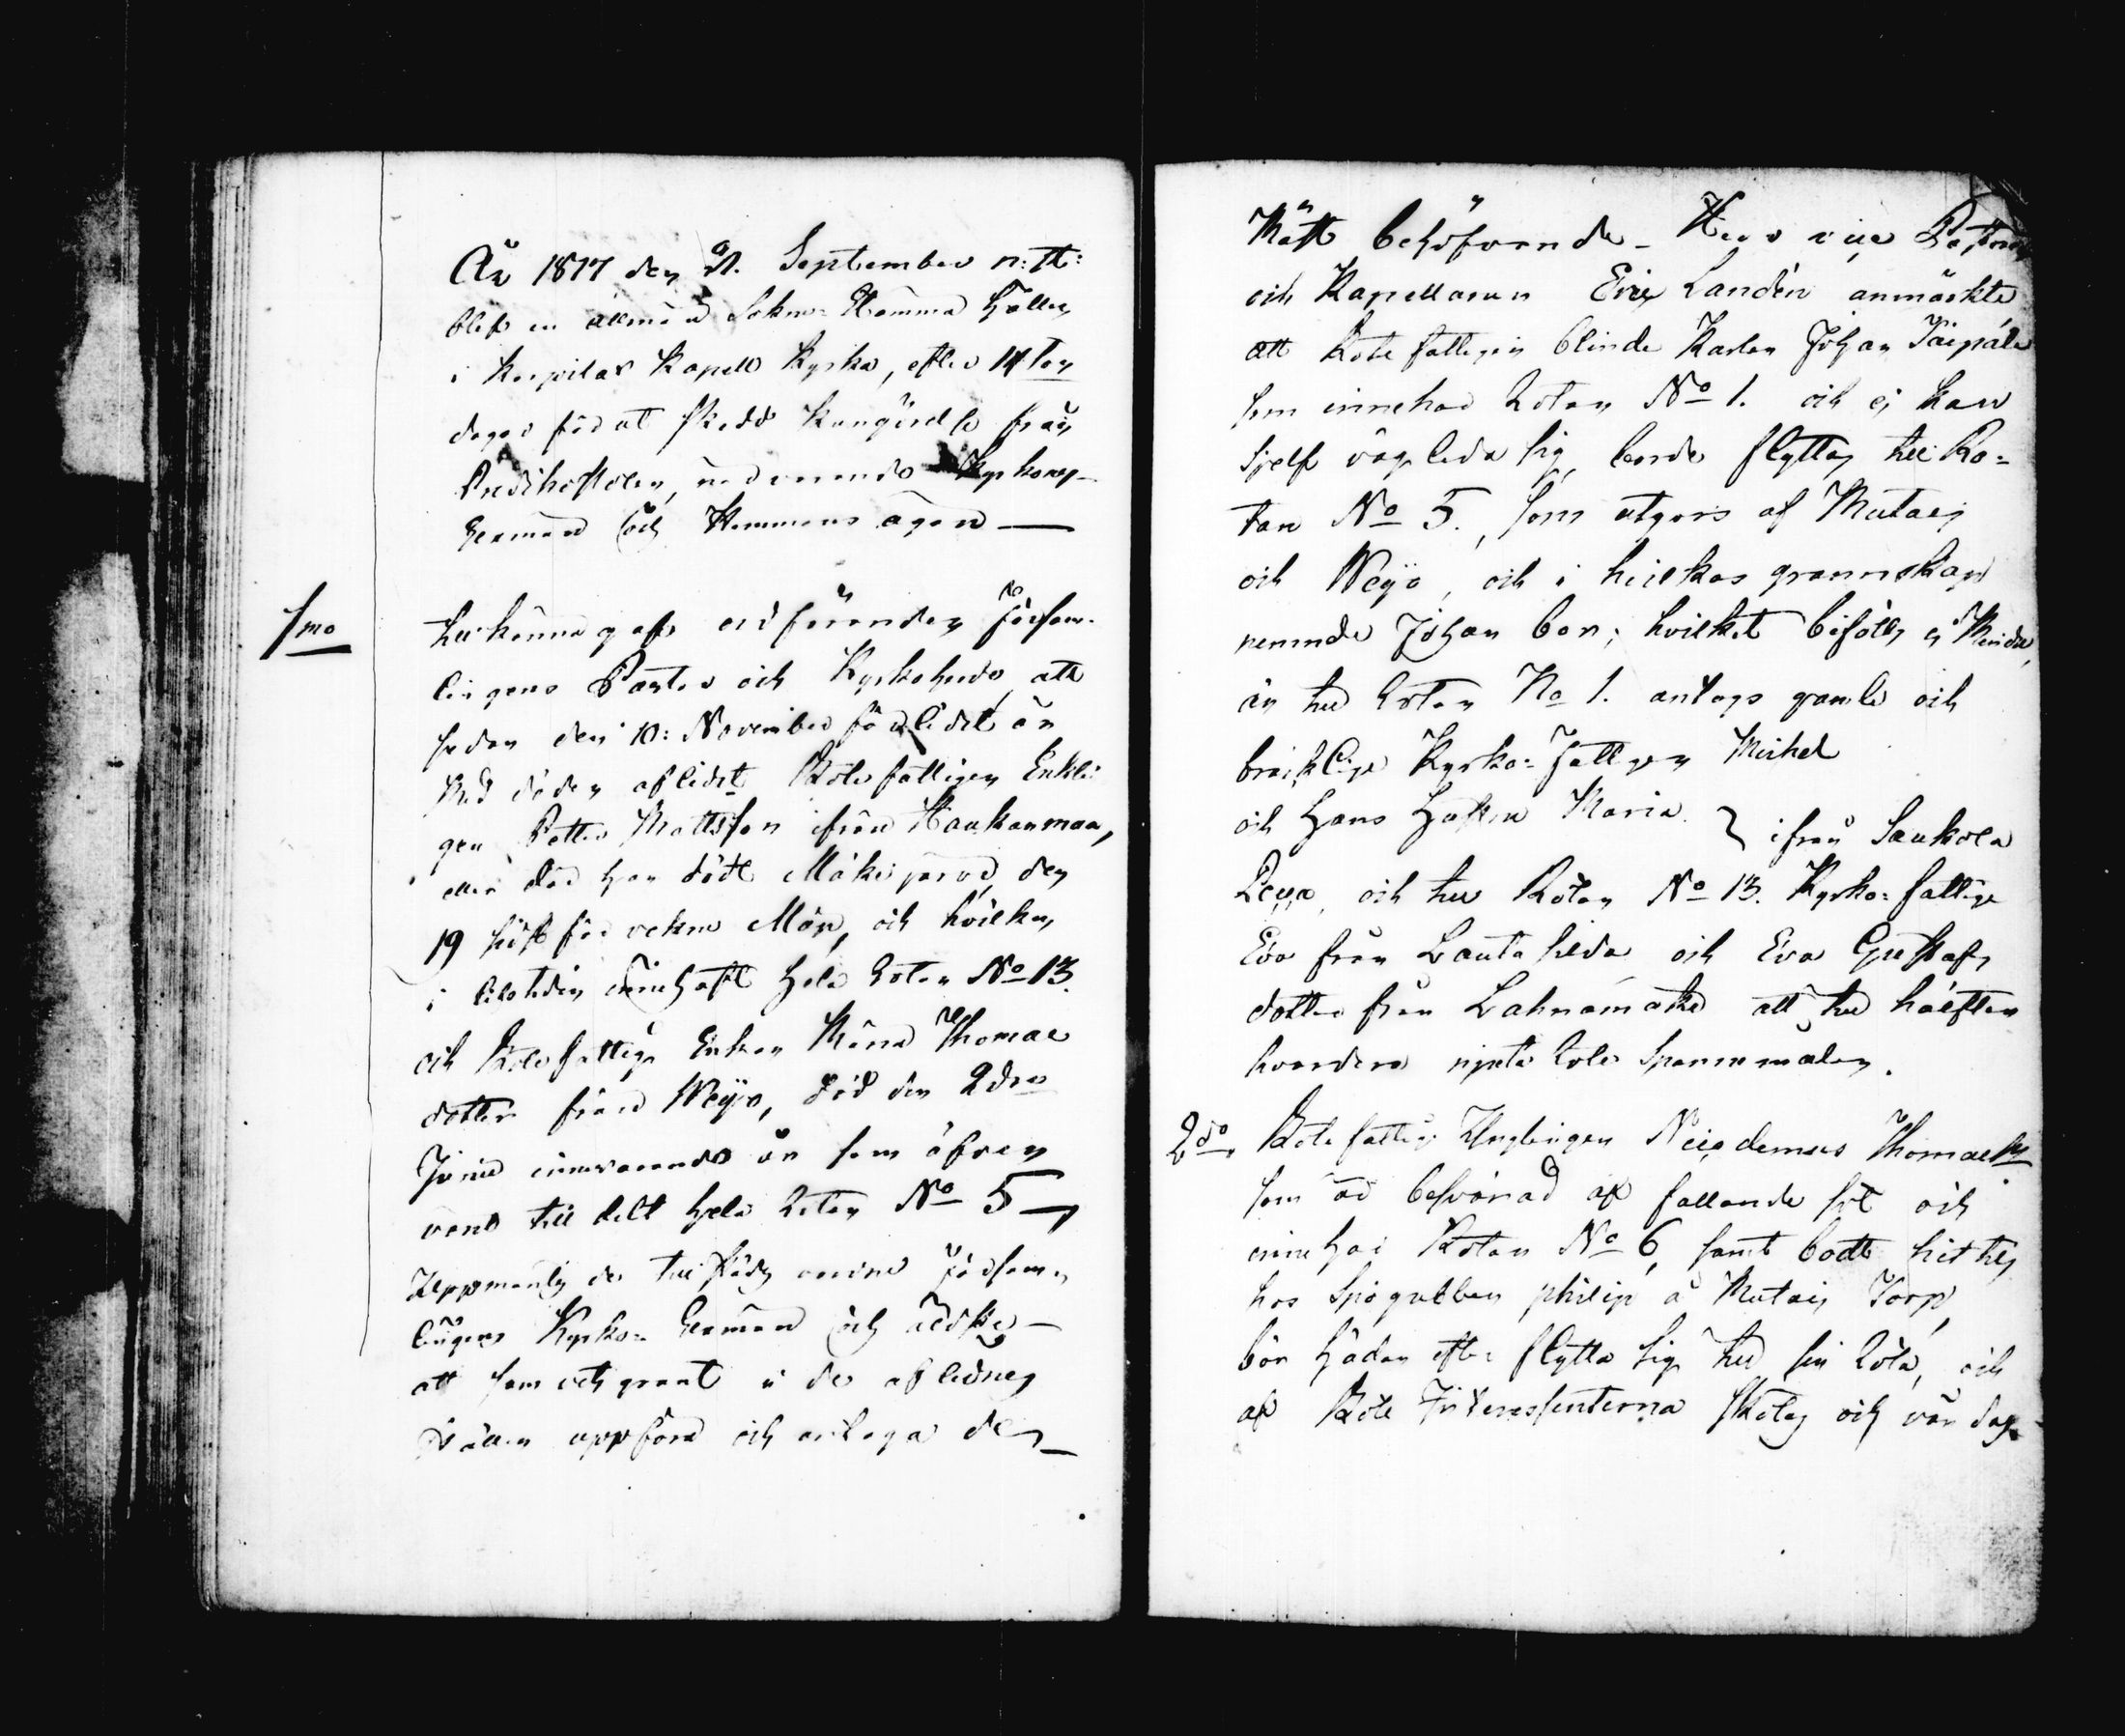 År 1817 den 21. September n: st:
blef en allmän Sokne-Stämma hållen
i Karpilax Kapells Kyrka, efter 14 ton
dagar förut skedd kungörelse från
Predikostolen, närvarande Kyrkones
Sexmän och Hemmans ägare —
1mo
Tillkänna gafs ordföranden Försam-
lingens Pastor och Kyrkoherde, att
sedan den 10: November förlidet år
Med döden aflidit Rotefattigen Enklin
gen Petter Mattsson ifrån Haukanmaa,
eller där han dödt Mäkijärvi, den
19 sistförvekne Maji, och hvilken
i lifstiden innehaft hela Rotan No 13.
och Rotefattige Enkan Maria Thomae
dotter från Weijo, död den 2dra
Junii innevarande år som äfven
varit tilldelt hela Rotan No 5
Uppmantes de tillstädes varande Försam-
lingens Kyrko-Sexmän och äldste
att samvetsgrant i de aflidnes
ställen uppföra och antaga de
Mäst behöfvande – Herr vice Pastorn
och Kapellanen Eric Landén anmärkte
att Rote fattigen blinde Karlen Johan Taipale
som innehar Rotan No 1. och ej kan
sjelf vägleda sig, borde flyttas till Ro-
tan No 5., som utgörs af Mutais
och Weijo, och i hvilkas grannskap
nemnde Johan bor; hvilket biföllts ej Mindre,
än till Rotan No 1. antogs gamle och
bräcklige Kyrko-fattigen Michel
och Hans Hustru Maria } ifrån Saukola
Peya, och till Rotan No 13. Kyrko-fattige
Eva från Lautasilda och Eva Gustafs
dotter från Lahnamäki att till hälften
hvardera njuta Rote Spannemålen.
2do. Rotefattig Ynglingen Nicodemus Thomaess.
som är besvärad af fallande sot och
innehar Rotan No 6, samt bodt hittils
hos Spögubben Philip å Mutais Torp,
bör hädan efter flytta sig till sin Rota, och
af Rote Interessenterna skötas och vårdas